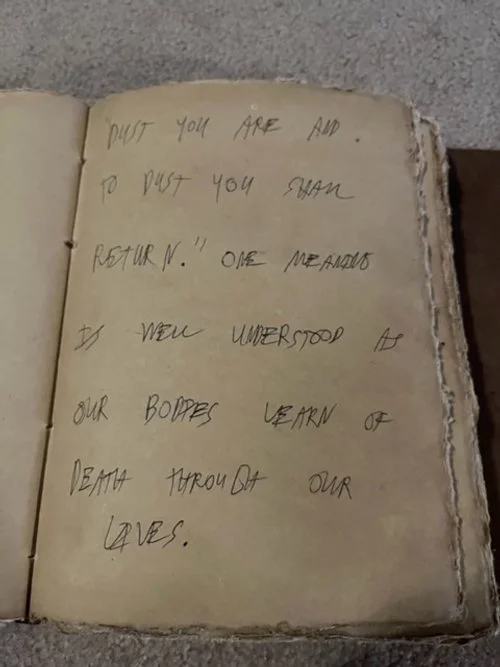 "DUST YOU ARE AND
TO DUST YOU SHALL
RETURN." ONE MEANING
IS WELL UNDERSTOOD AS
OUR BODIES LEARN OF
DEATH THROUGH OUR
LIVES.